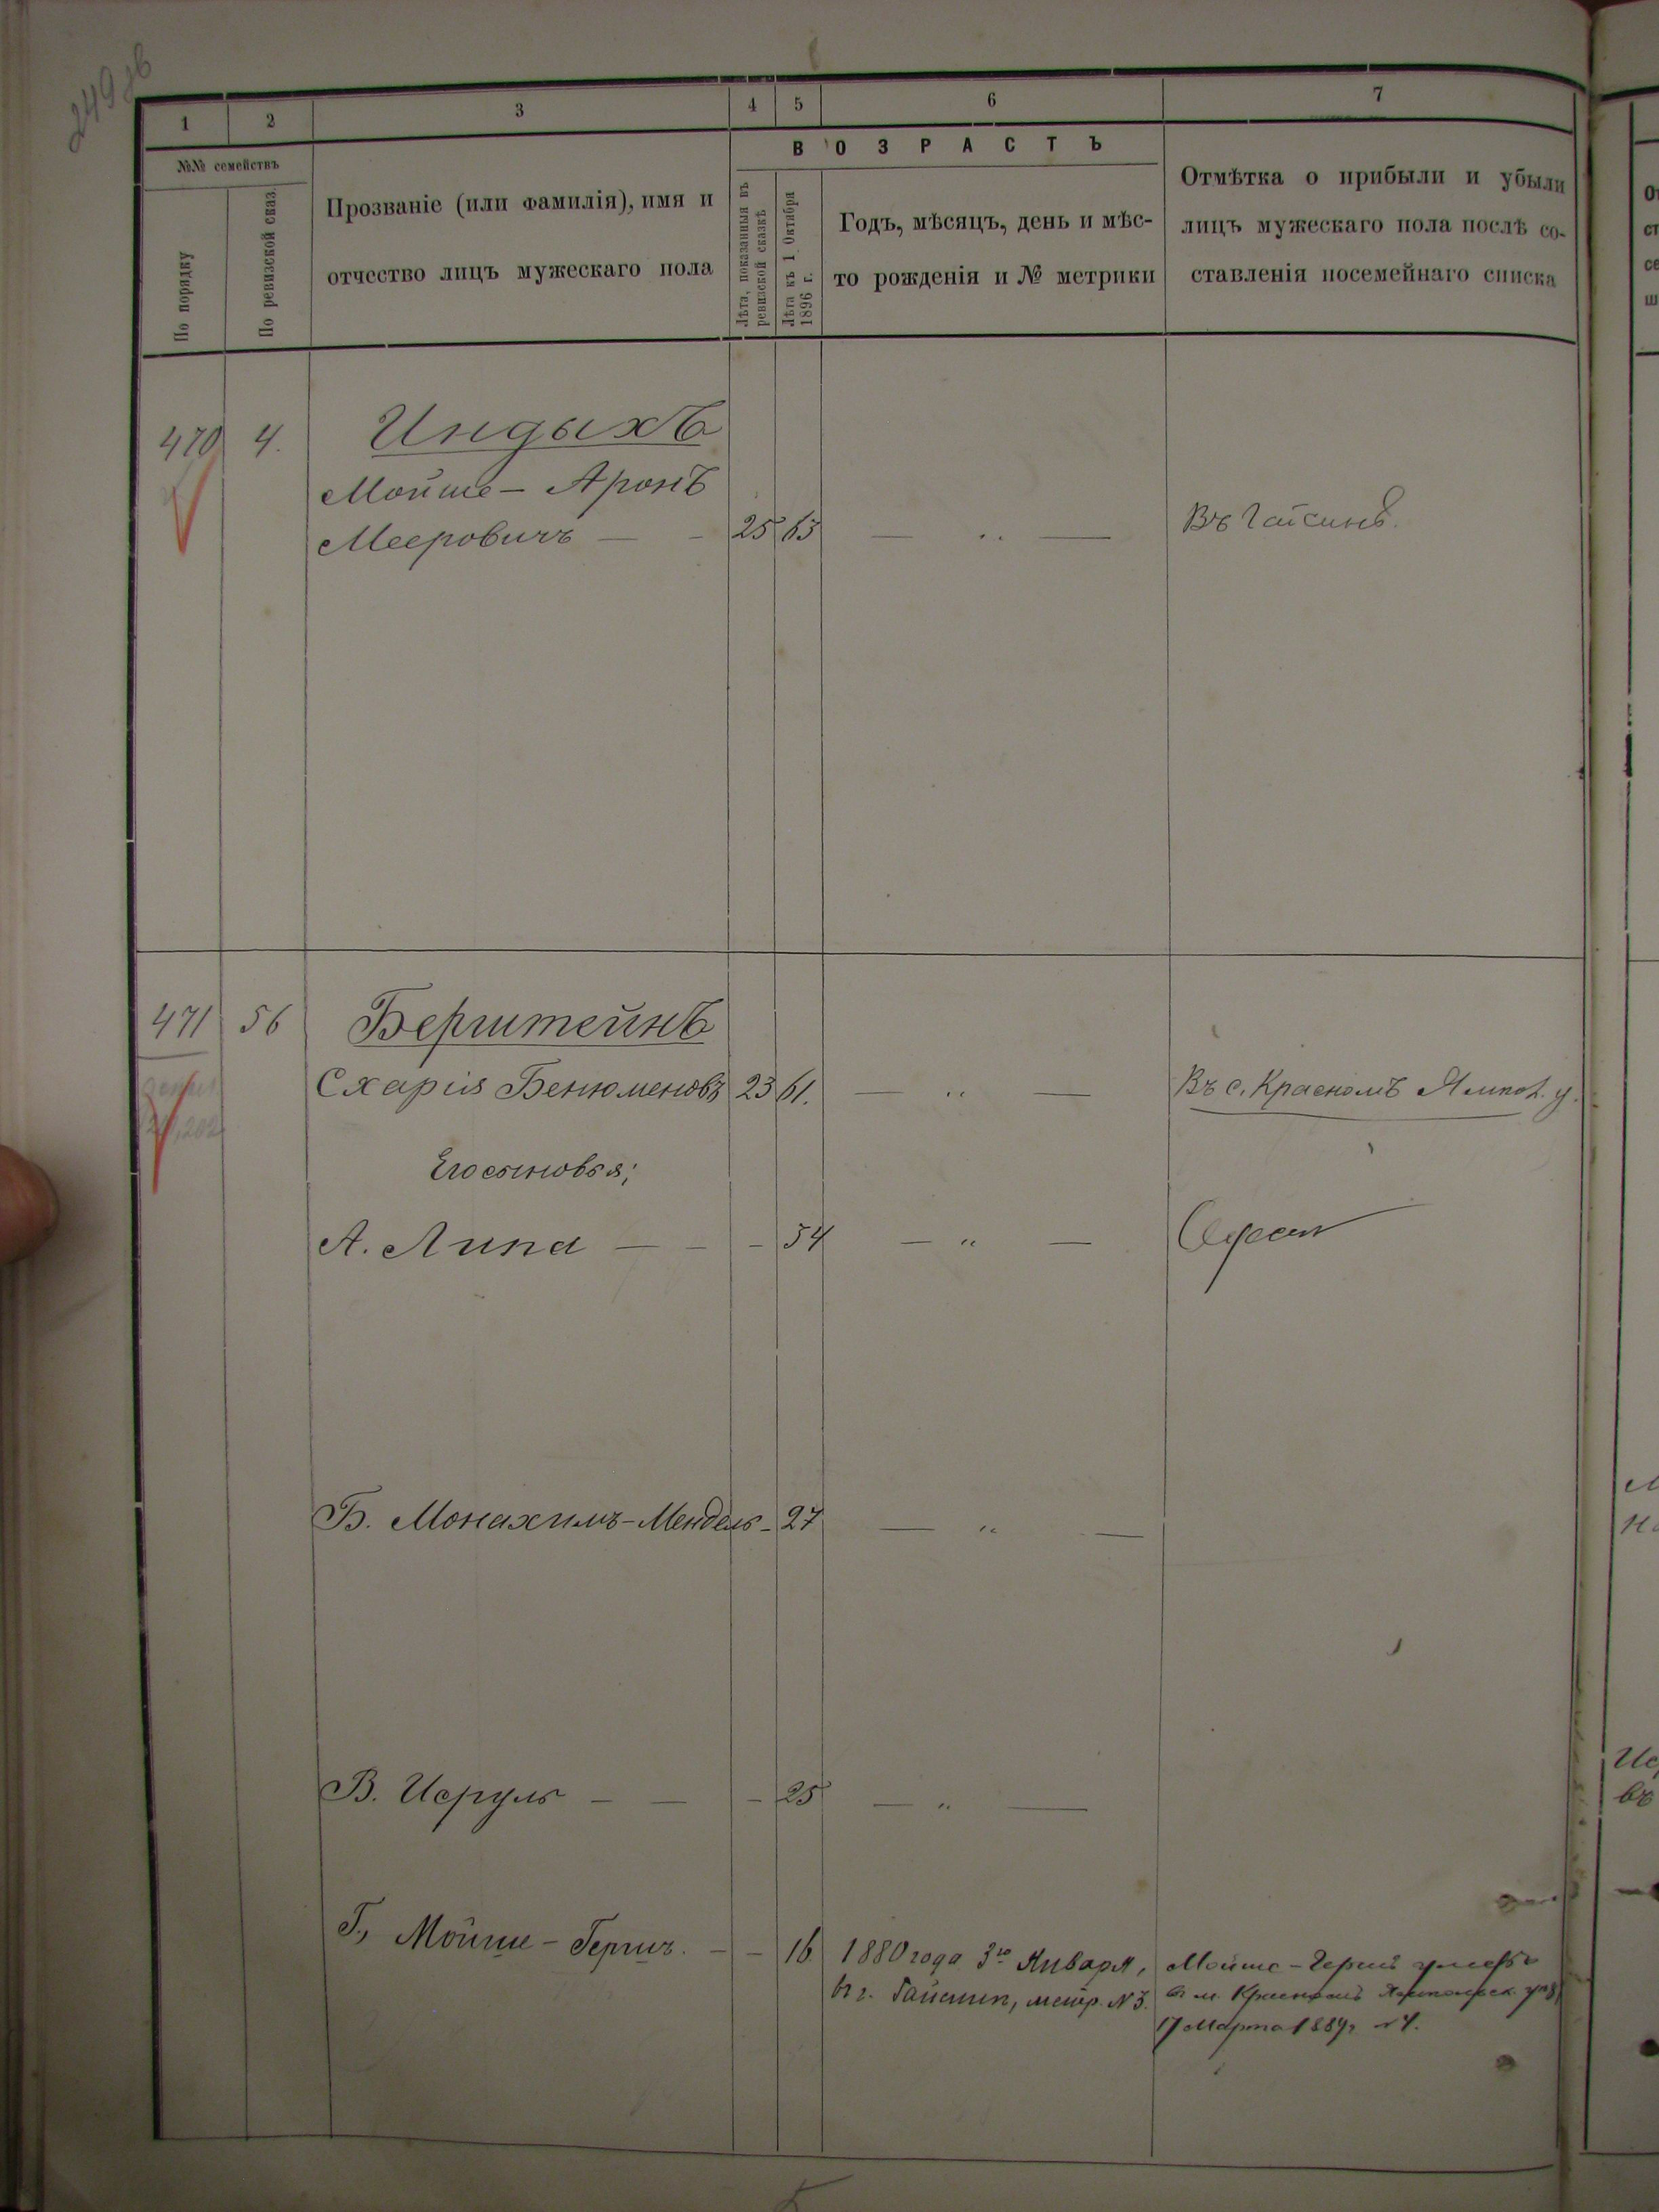 249 об
1 2 3 4 5 6 7
№№ семействъ
По порядку
По ревизской сказ.
Прозваніе (или фамилія), имя и
отчество лицъ мужескаго пола
ВОЗРАСТЪ
Лѣта, показанныя въ
ревизской сказкѣ
Лѣта къ 1 Октября
1896 г.
Годъ, мѣсяцъ, день и мѣс-
то рожденія и № метрики
Отмѣтка о прибыли и убыли
лицъ мужескаго пола послѣ со-
ставленія посемейнаго списка
470 4. Индыхъ
Мойше - Аронъ
Мееровичъ — - 25 63 — „ — Въ Гайсинѣ.
471 56 Берштейнъ
Схарія Бенюменовъ 23 61. — „ — Въ с. Красномъ Ямпол. у.
Его сыновья;
А. Липа — - - 34 — „ — Одесса
Б. Монахимъ-Мендель - 27 — „ —
В. Исруль - — - 25 — „ —
Г., Мойше - Гершъ. - - 16 1880 года 3го Января, Мойше - Герш умеръ
въ г. Гайсинѣ, метр. №3. въ м. Красномъ Ямпольск. уѣз.
17 Марта 1889г. №4.